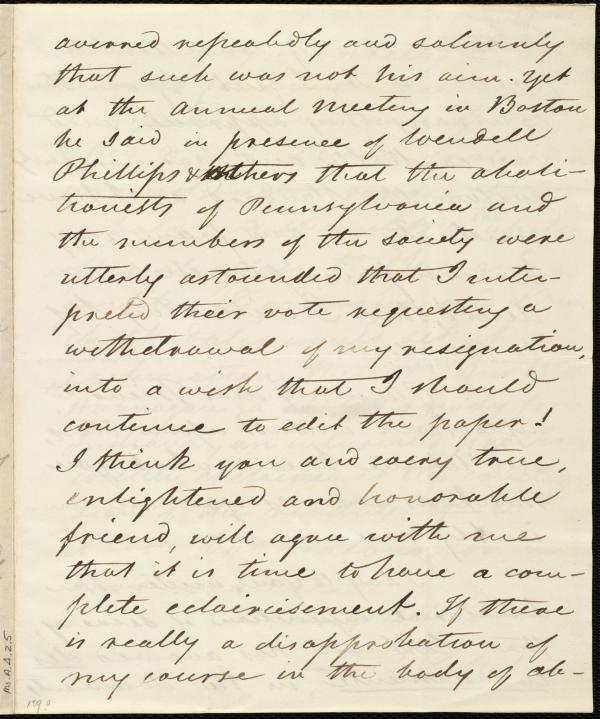 averred repeatedly and solemnly
that such was not his aim. Yet
at the annual Meeting in Boston
he said in presence of Wendell
Phillips & others that the aboli-
tionists of Pennsylvania and
the members of the society were
utterly astounded that I inter-
preted their vote requesting a
withdrawal of my resignation,
into a wish that I should
continue to edit the paper!
I think you and every true,
enlightened and honorable
friend, will agree with me
that it is time to have a com-
plete eclaircisement. If there
is really a disapprobation of
my course in the body of ab-
Ms.A.4.2.5